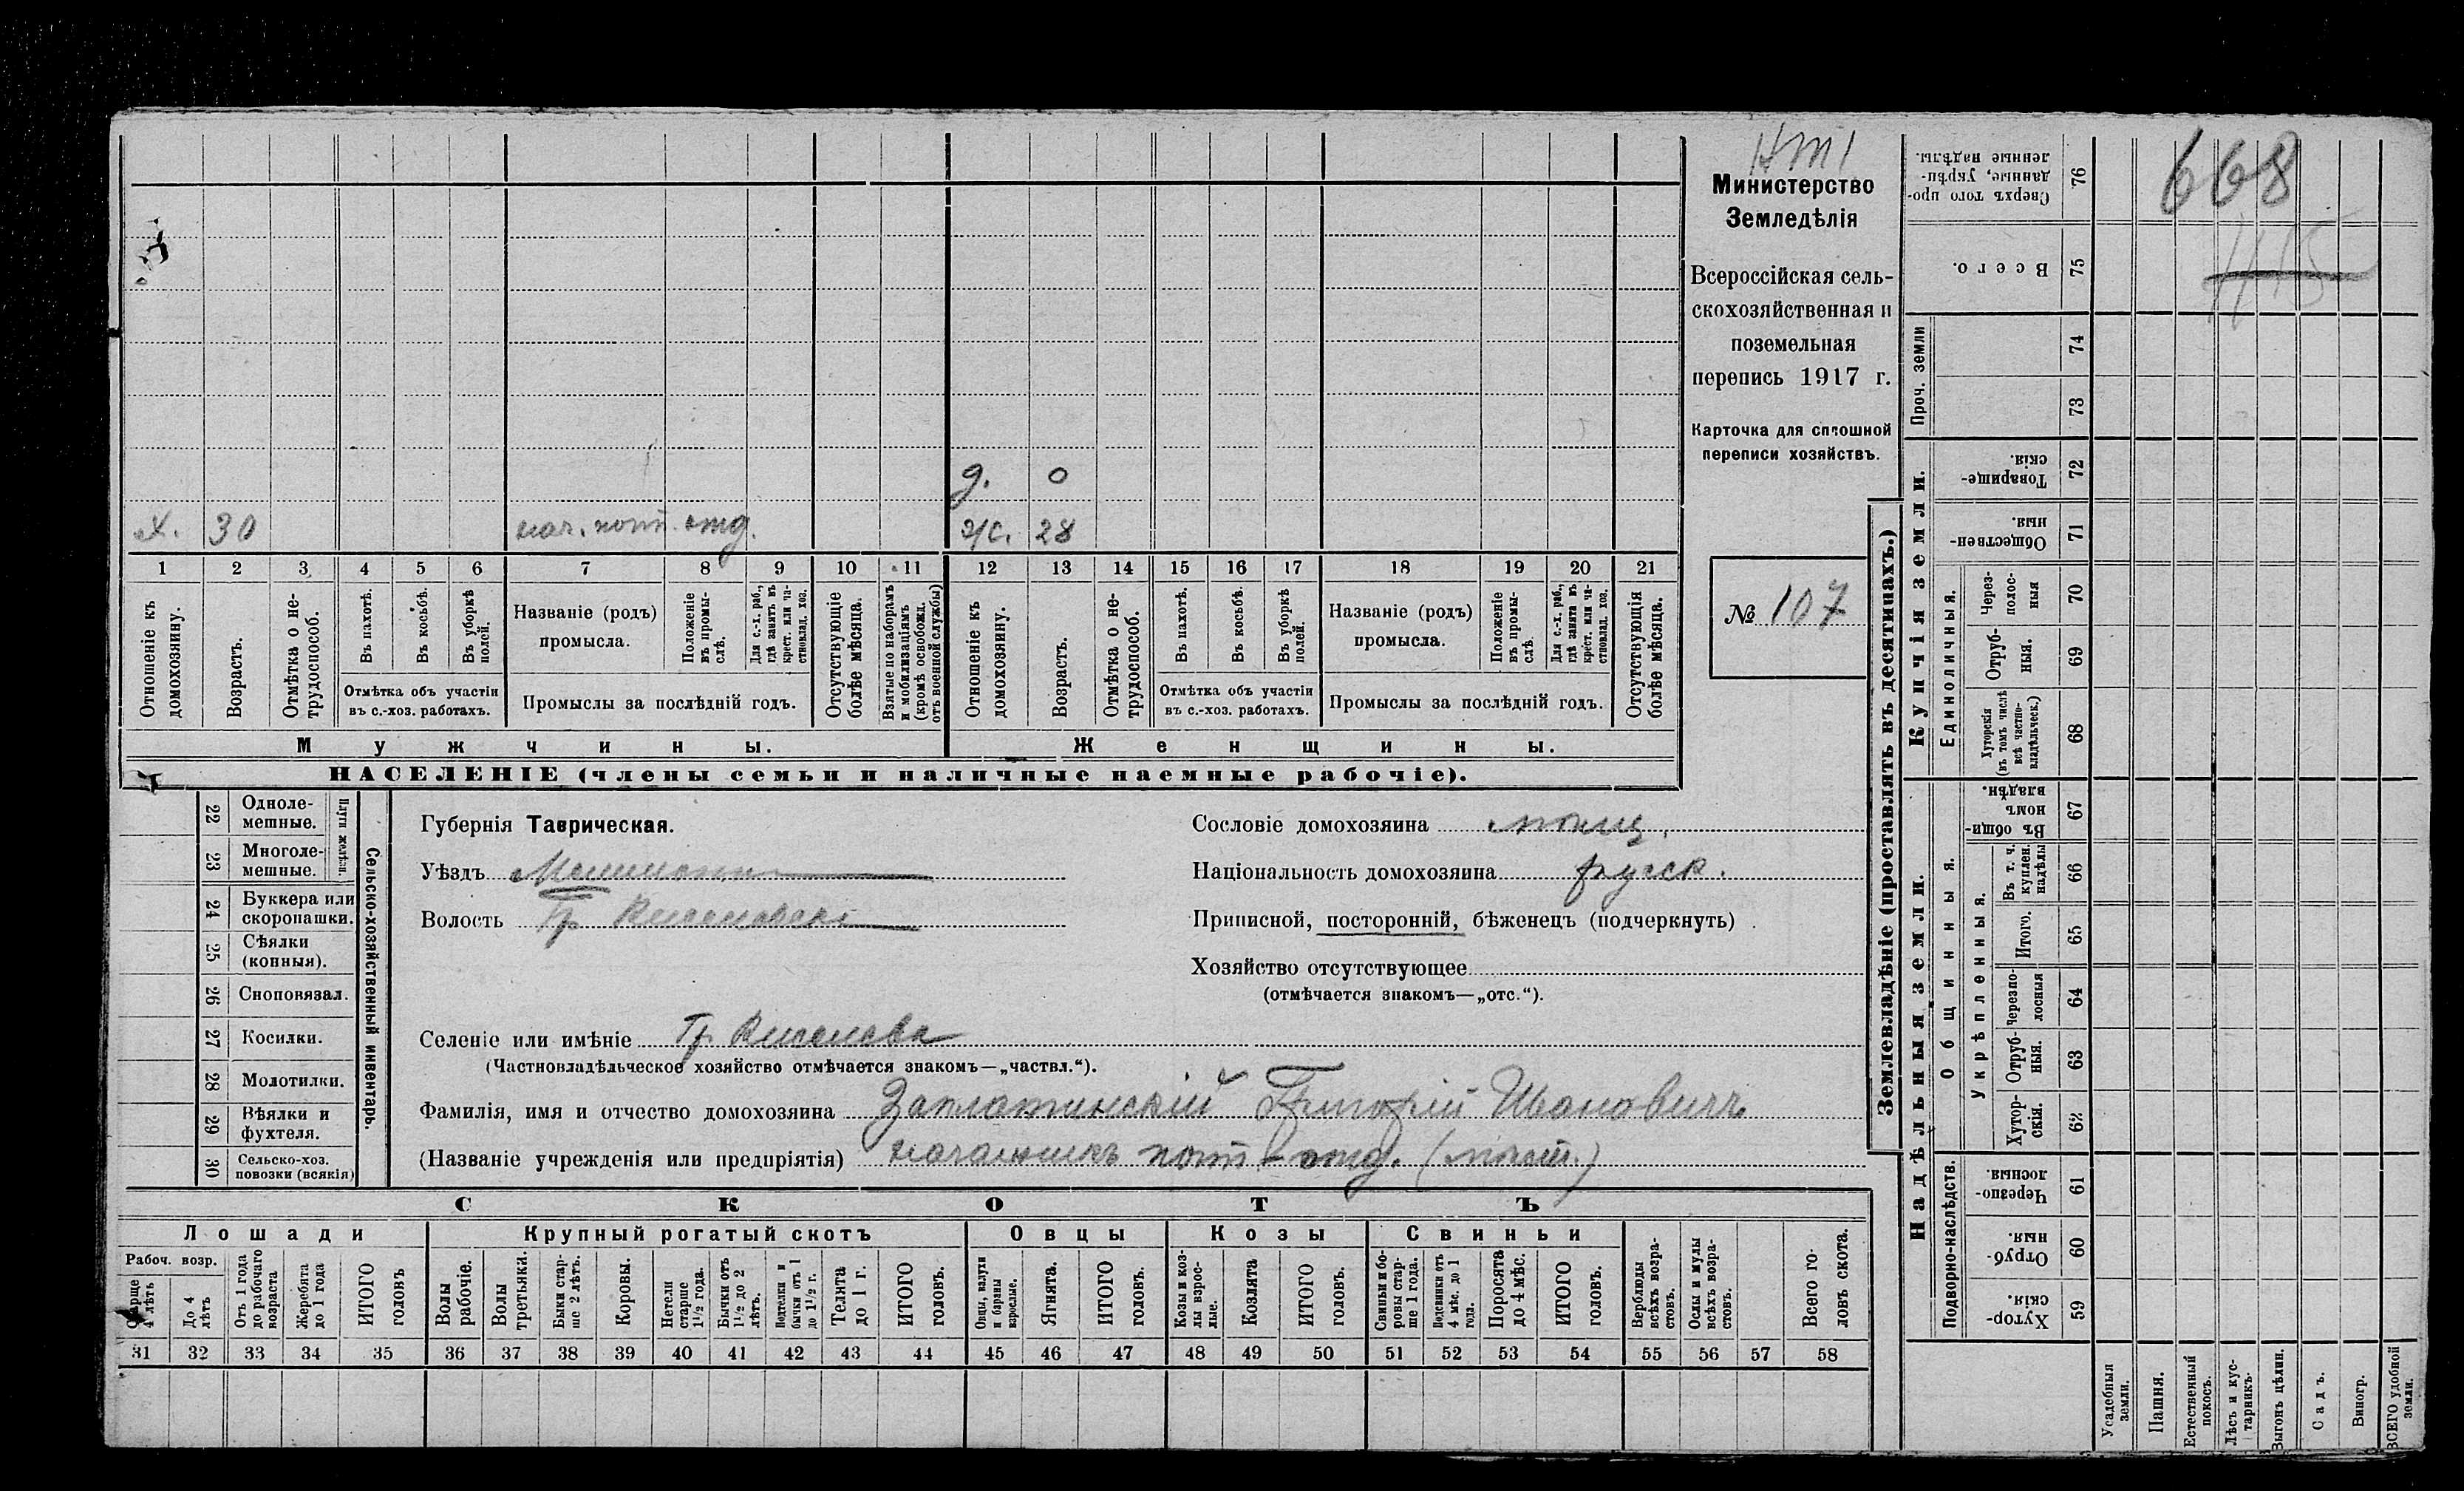 668
Министерство
Земледѣлія
Всероссійская сель-
скохозяйственная и
поземельная
перепись 1917 г.
Карточка для сплошной
переписи хозяйствъ.
№ 107
д. 0
х. 30 нач. почт. отд. ж. 28
1 2 3 4 5 6 7 8 9 10 11 12 13 14 15 16 17 18 19 20 21
Отношеніе къ домохозяину.
Возрастъ.
Отмѣтка о не-трудоспособ.
Въ пахотѣ.
Въ косьбѣ.
Въ уборкѣ полей.
Отмѣтка объ участіи
въ с.-хоз. работахъ.
Названіе (родъ)
промысла.
Положеніе въ промы-слѣ.
Для с.-х. раб., гдѣ занятъ въ крест. или ча-стновлад. хоз.
Промыслы за послѣдній годъ.
Отсутствующіе болѣе мѣсяца.
Взятые по наборамъ и мобилизаціямъ (кромѣ освобожд. отъ военной службы)
Отношеніе къ домохозяину.
Возрастъ.
Отмѣтка о не-трудоспособ.
Въ пахотѣ.
Въ косьбѣ.
Въ уборкѣ полей.
Отмѣтка объ участіи
въ с.-хоз. работахъ.
Названіе (родъ)
промысла.
Положеніе въ промы-слѣ.
Для с.-х. раб., гдѣ занята въ крест. или ча-стновлад. хоз.
Промыслы за послѣдній годъ.
Отсутствующія болѣе мѣсяца.
Мужчины. Женщины.
НАСЕЛЕНІЕ (члены семьи и наличные наемные рабочіе).
Сельско-хозяйственный инвентарь.
Плуги желѣзн.
22 Одноле-мешные.
23 Многоле-мешные.
24 Буккера или скоропашки.
25 Сѣялки (конныя).
26 Сноповязал.
27 Косилки.
28 Молотилки.
29 Вѣялки и фухтеля.
30 Сельско-хоз. повозки (всякія)
Губернія Таврическая.
Уѣздъ
Волость
Селеніе или имѣніе
(Частновладѣльческое хозяйство отмѣчается знакомъ—„частвл.“).
Сословіе домохозяина
Національность домохозяина русск.
Приписной, посторонній, бѣженецъ (подчеркнуть)
Хозяйство отсутствующее
(отмѣчается знакомъ—„отс.“).
Фамилія, имя и отчество домохозяина Заплатинскій Григорій Ивановичъ
(Названіе учрежденія или предпріятія) начальникъ почт-отд.
СКОТЪ
Лошади Крупный рогатый скотъ Овцы Козы Свиньи
Рабоч. возр.
Старше 4 лѣтъ
До 4 лѣтъ
Отъ 1 года до рабочаго возраста
Жеребята до 1 года
ИТОГО головъ
Волы рабочіе.
Волы третьяки.
Быки стар-ше 2 лѣтъ.
Коровы.
Нетели старше 1½ года.
Бычки отъ 1½ до 2 лѣтъ.
Подтелки и бычки отъ 1 до 1½ г.
Телята до 1 г.
ИТОГО головъ.
Овцы, валухи и бараны взрослые.
Ягнята.
ИТОГО головъ.
Козы и коз-лы взрос-лые.
Козлята
ИТОГО головъ.
Свиньи и бо-ровы стар-ше 1 года.
Подсвинки отъ 4 мѣс. до 1 года.
Поросята до 4 мѣс.
ИТОГО головъ.
Верблюды всѣхъ возра-стовъ.
Ослы и мулы всѣхъ возра-стовъ.
Всего го-ловъ скота.
31 32 33 34 35 36 37 38 39 40 41 42 43 44 45 46 47 48 49 50 51 52 53 54 55 56 57 58
Землевладѣніе (проставлять въ десятинахъ.)
Купчія земли.
Надѣльныя земли.
Сверхъ того про-данные, укрѣп-ленные надѣлы. 76
Всего. 75
Проч. земли 74 73
Товарище-скія. 72
Обществен-ныя. 71
Единоличныя.
Через-полос-ныя 70
Отруб-ныя. 69
Хуторскія (въ томъ числѣ всѣ частно-владѣльческ.) 68
Общинныя.
Въ общин-номъ владѣн. 67
Укрѣпленныя.
Въ т. ч. куплен. надѣлы 66
Итого. 65
Черезпо-лосныя 64
Отруб-ныя. 63
Хутор-скія. 62
Подворно-наслѣдств.
Черезпо-лосныя. 61
Отруб-ныя. 60
Хутор-скія. 59
Усадебныя земли.
Пашня.
Естественный покосъ.
Лѣсъ и кус-тарникъ.
Выгонъ цѣлин.
Садъ.
Виногр.
ВСЕГО удобной земли.